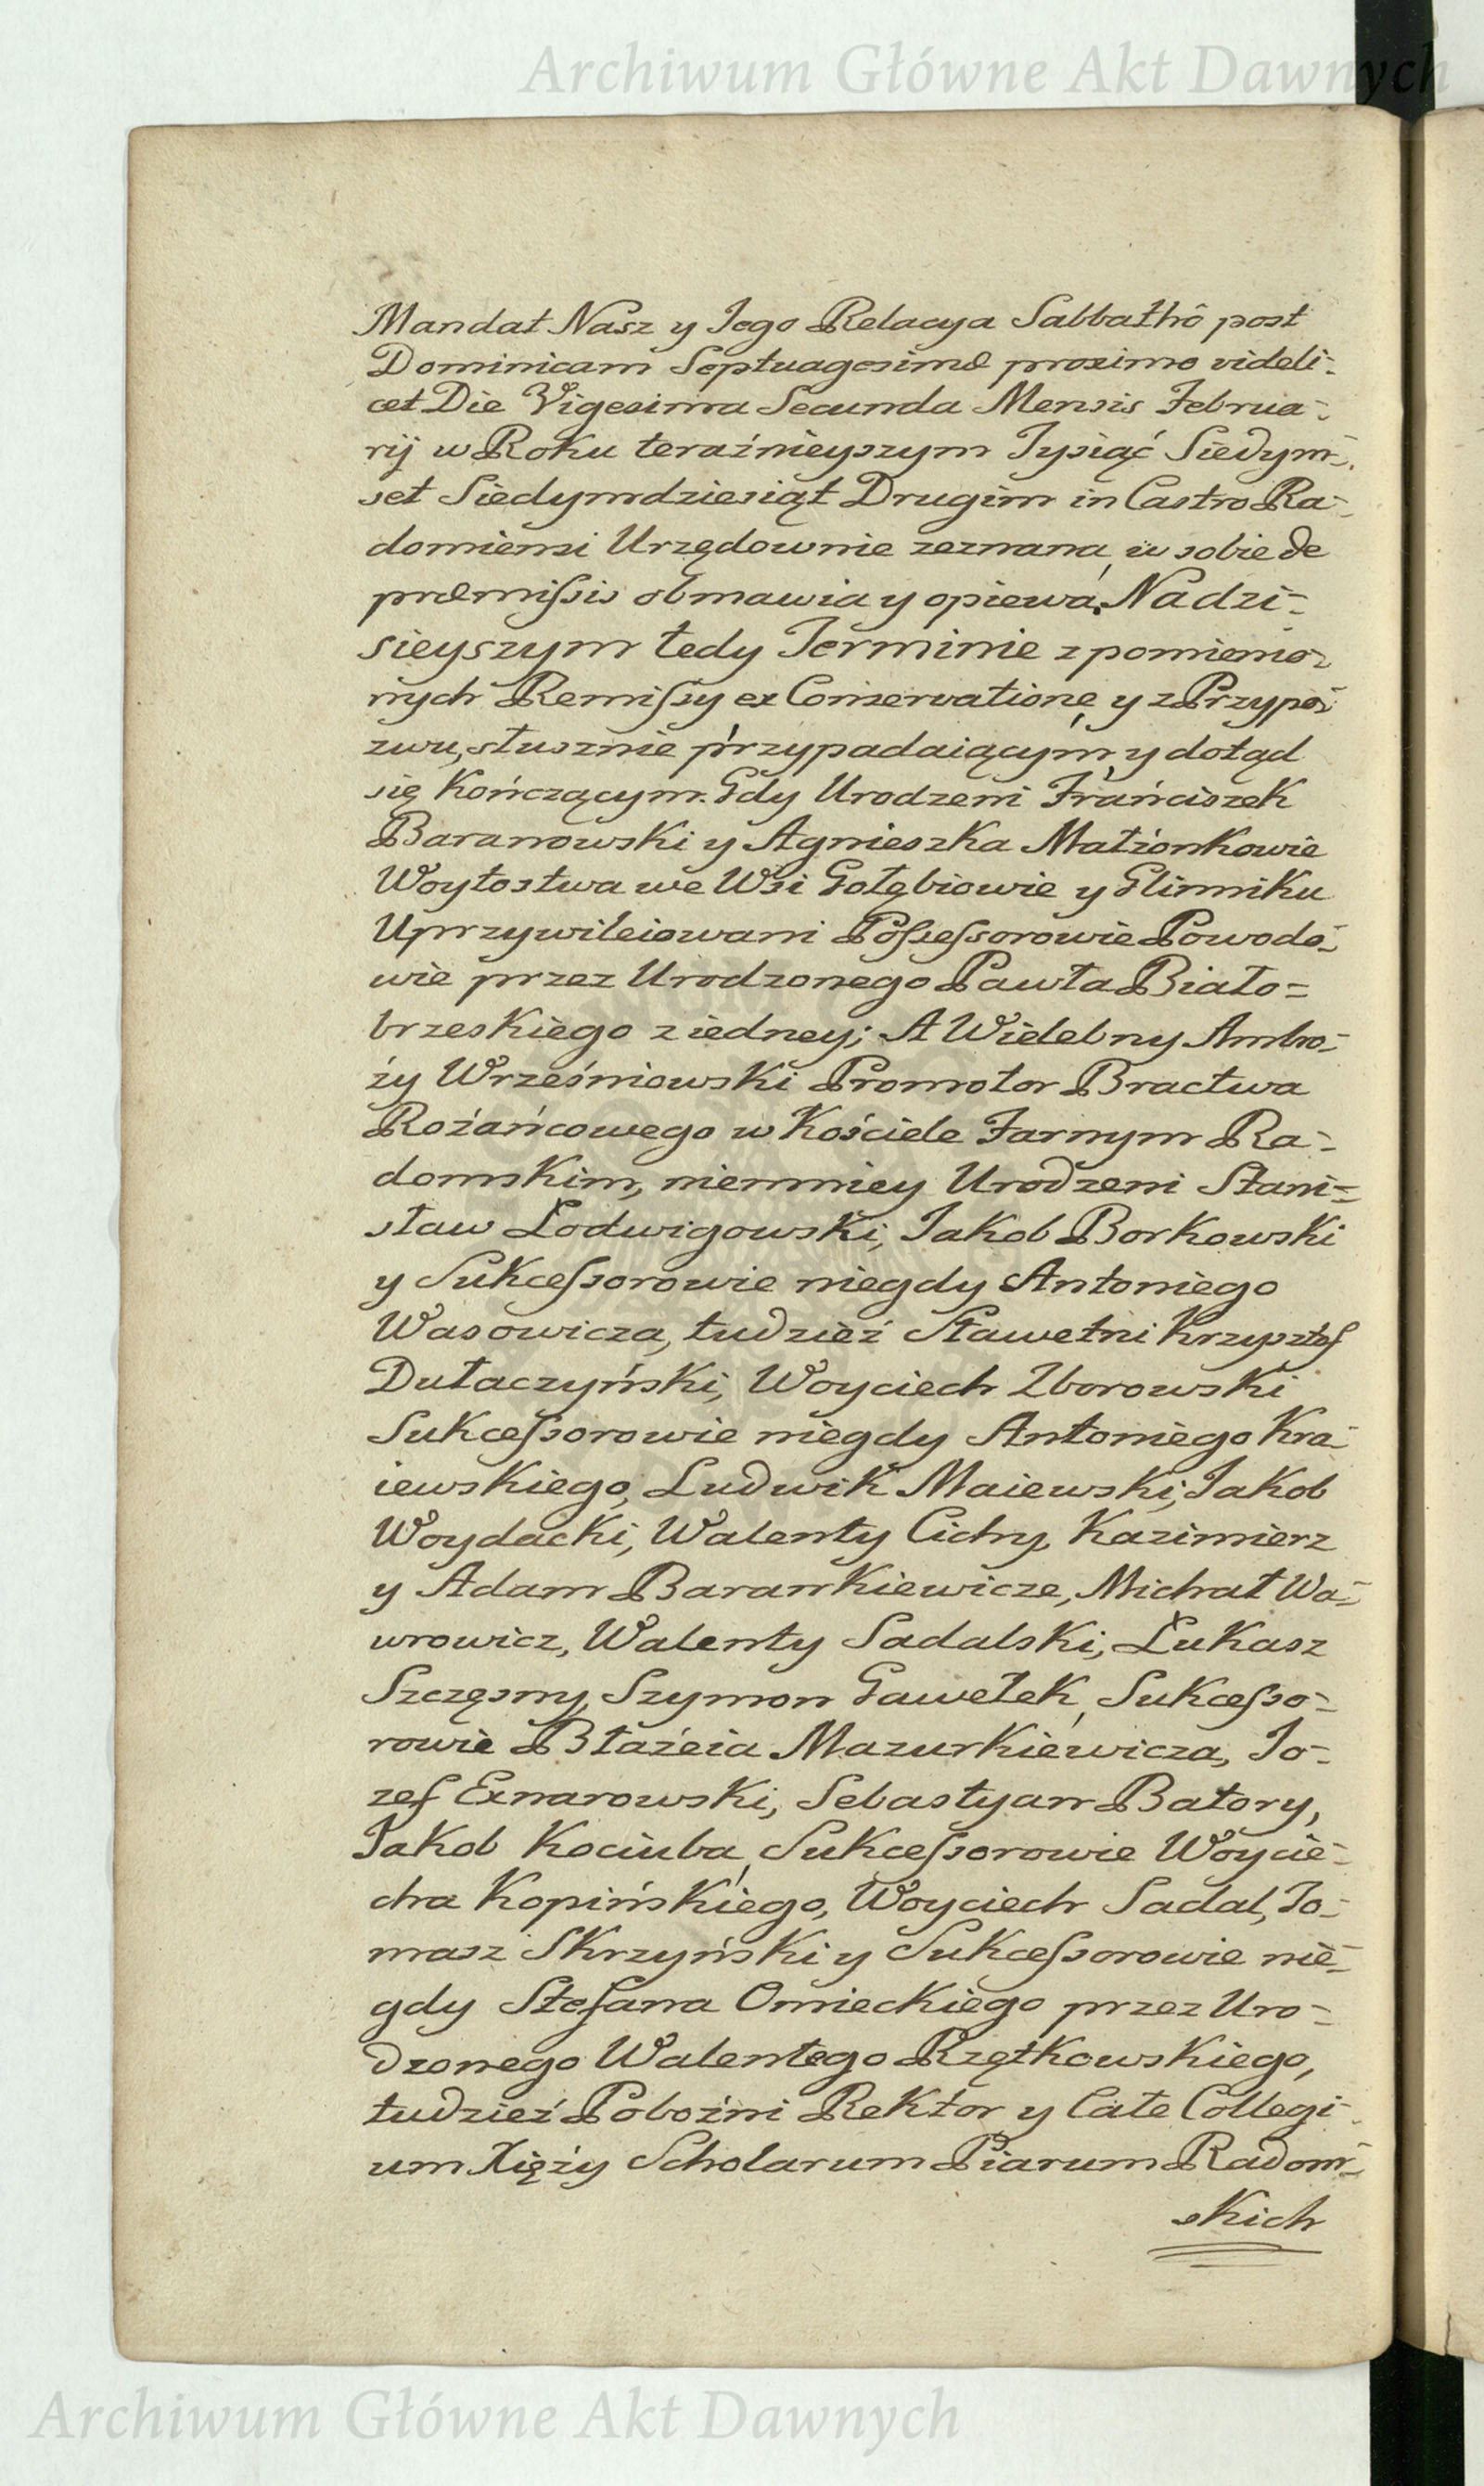 Archiwum Główne Akt Dawnych
Mandat Nasz y Jego Relacya Sabbathô post
Dominicam Septuagesimæ proximo videli=
cet Die Vigesima Secunda Mensis Februa=
rij w Roku teraźnieyszym Tysiąć Siedym=
set Siedymdziesiąt Drugim in Castro Ra=
domiensi Urzędownie zeznana, w sobie de
præmiſsis obmawia y opiewa. Na dzi=
sieyszym tedy Terminie z pomienio=
nych Remiſsy ex Conservatione, y z Przypo=
zwu, słusznie przypadaiącym, y dotąd
się Kończącym. Gdy Urodzeni Franciszek
Baranowski y Agnieszka Małżonkowie
Woytostwa we Wsi Gołębiowie y Glinniku
Uprzywileiowani Poſseſsorowie Powodo=
wie przez Urodzonego Pawła Biało=
brzeskiego z iedney; A Wielebny Ambro=
ży Wrześniowski Promotor Bractwa
Rożańcowego w Kościele Farnym Ra=
domskim, niemniey Urodzeni Stani=
sław Łodwigowski, Jakob Borkowski
y Sukceſsorowie niegdy Antoniego
Wasowicza, tudzież Sławetni Krzysztof
Dutaczyński, Woyciech Zborowski
Sukceſsorowie niegdy Antoniego Kra=
iewskiego, Ludwik Maiewski, Jakob
Woydacki, Walenty Cichy, Kazimierz
y Adam Barankiewicze, Michał Wa=
wrowicz, Walenty Sadalski, Łukasz
Szczęsny, Szymon Gawełek, Sukceſso=
rowie Błażeia Mazurkiewicza, Jo=
zef Exnarowski, Sebastyan Batory,
Jakob Kociuba, Sukceſsorowie Woycie=
cha Kopińskiego, Woyciech Sadal, To=
masz Skrzyński y Sukceſsorowie nie=
gdy Stefana Omieckiego przez Uro=
dzonego Walentego Rzętkowskiego,
tudzież Pobożni Rektor y Całe Collegi=
um Xięży Scholarum Piarum Radom=
skich
Archiwum Główne Akt Dawnych